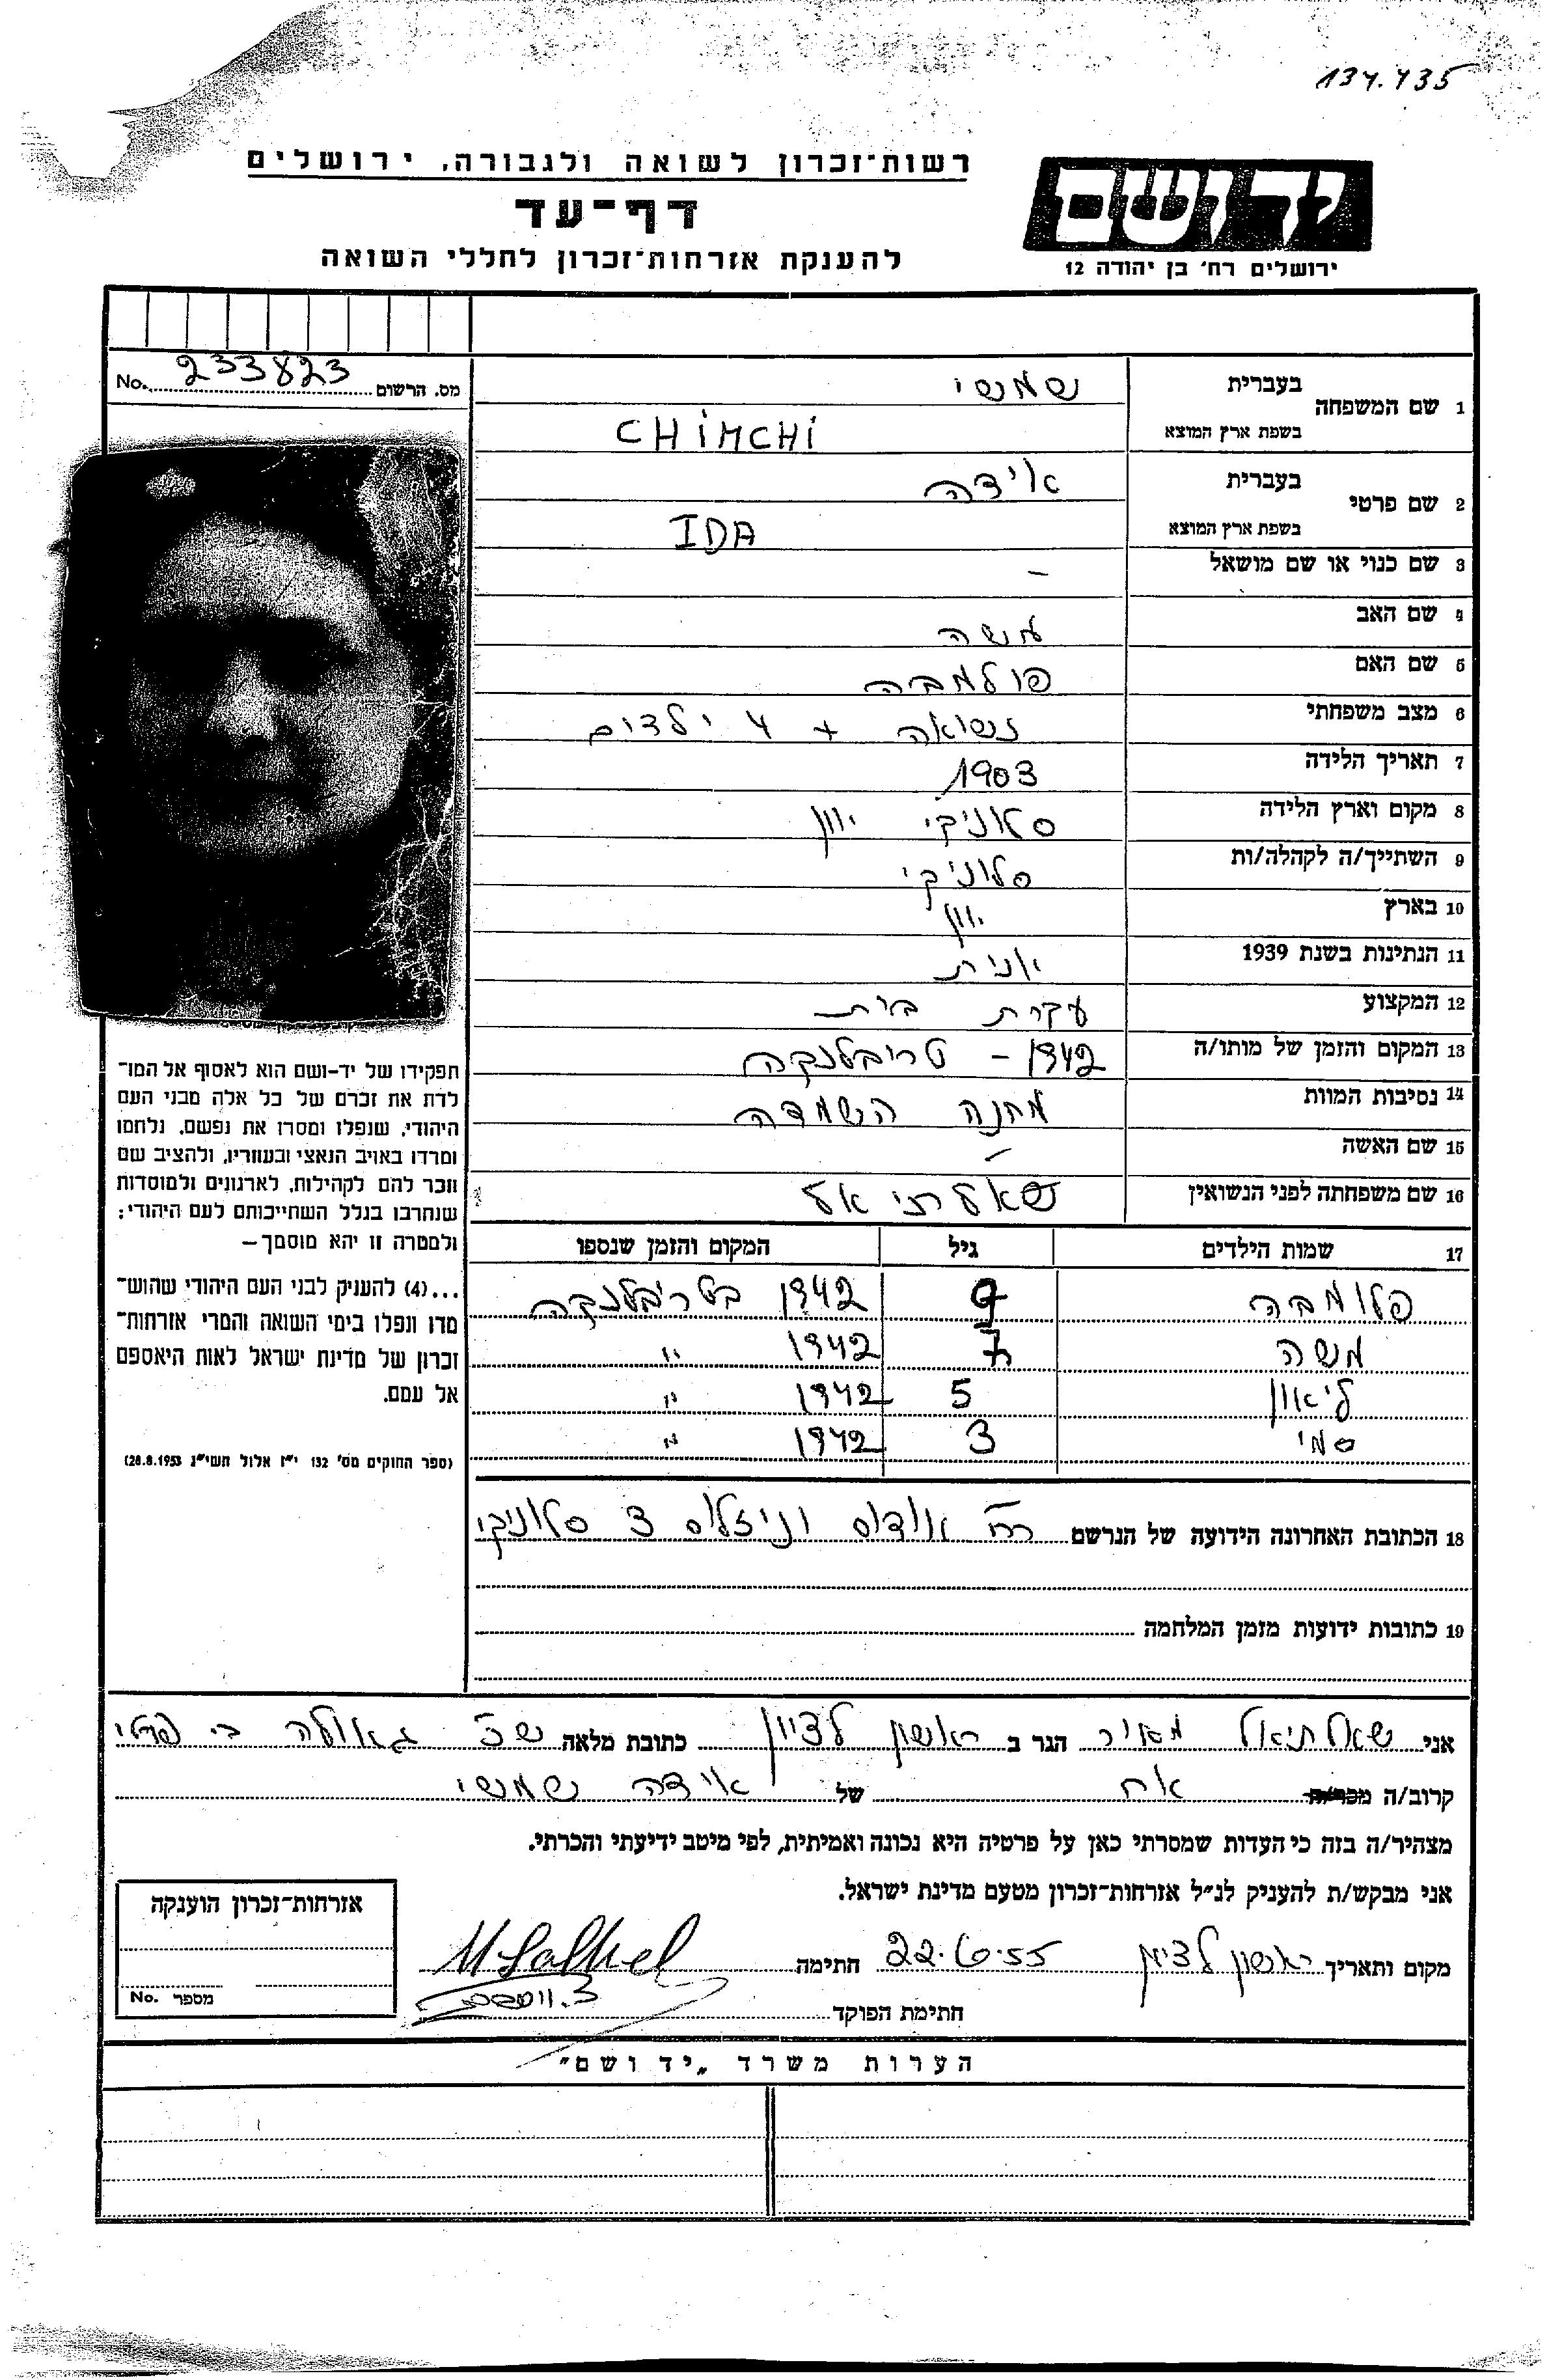 134.735
רשות־זכרון לשואה ולגבורה, ירושלים
דף־עד
להענקת אזרחות־זכרון לחללי השואה
יד ושם
ירושלים רח' בן יהודה 12
מס. הרשום 233823 No.
1 שם המשפחה
בעברית שמשי
בשפת ארץ המוצא CHIMCHI
2 שם פרטי
בעברית אידה
בשפת ארץ המוצא IDA
3 שם כנוי או שם מושאל –
4 שם האב משה
5 שם האם פולמביה
6 מצב משפחתי נשואה + 4 ילדים
7 תאריך הלידה 1903
8 מקום וארץ הלידה סלוניקי יוון
9 השתייך/ה לקהלה/ות סלוניקי
10 בארץ יוון
11 הנתינות בשנת 1939 יונית
12 המקצוע עקרת בית
13 המקום והזמן של מותו/ה 1942 – טריבלנקה
14 נסיבות המוות מחנה השמדה
15 שם האשה –
16 שם משפחתה לפני הנשואין שאלתיאל
17 שמות הילדים גיל המקום והזמן שנספו
פלומבה 9 1942 בטריבלנקה
משה 7 1942 "
ליאון 5 1942 "
סמי 3 1942 "
18 הכתובת האחרונה הידועה של הנרשם רח' 3 סלוניקי
19 כתובות ידועות מזמן המלחמה
תפקידו של יד-ושם הוא לאסוף אל המו־
לדת את זכרם של כל אלה מבני העם
היהודי, שנפלו ומסרו את נפשם, נלחמו
ומרדו באויב הנאצי ובעוזריו, ולהציב שם
וזכר להם לקהילות, לארגונים ולמוסדות
שנחרבו בגלל השתייכותם לעם היהודי;
ולמטרה זו יהא מוסמך–
...(4) להעניק לבני העם היהודי שהוש־
מדו ונפלו בימי השואה והמרי אזרחות־
זכרון של מדינת ישראל לאות היאספם
אל עמם.
(ספר החוקים מס' 132 י"ז אלול תשי"ג 28.8.1953)
אני שאלתיאל מאיר הגר ב ראשון לציון כתובת מלאה שכ' גאולה
קרוב/ה מכר/ה אח של אידה שמשי
מצהיר/ה בזה כי העדות שמסרתי כאן על פרטיה היא נכונה ואמיתית, לפי מיטב ידיעתי והכרתי.
אני מבקש/ת להעניק לנ"ל אזרחות־זכרון מטעם מדינת ישראל.
מקום ותאריך ראשון לציון 22.6.55 חתימה
חתימת הפוקד
אזרחות־זכרון הוענקה
מספר No.
הערות משרד „יד ושם"